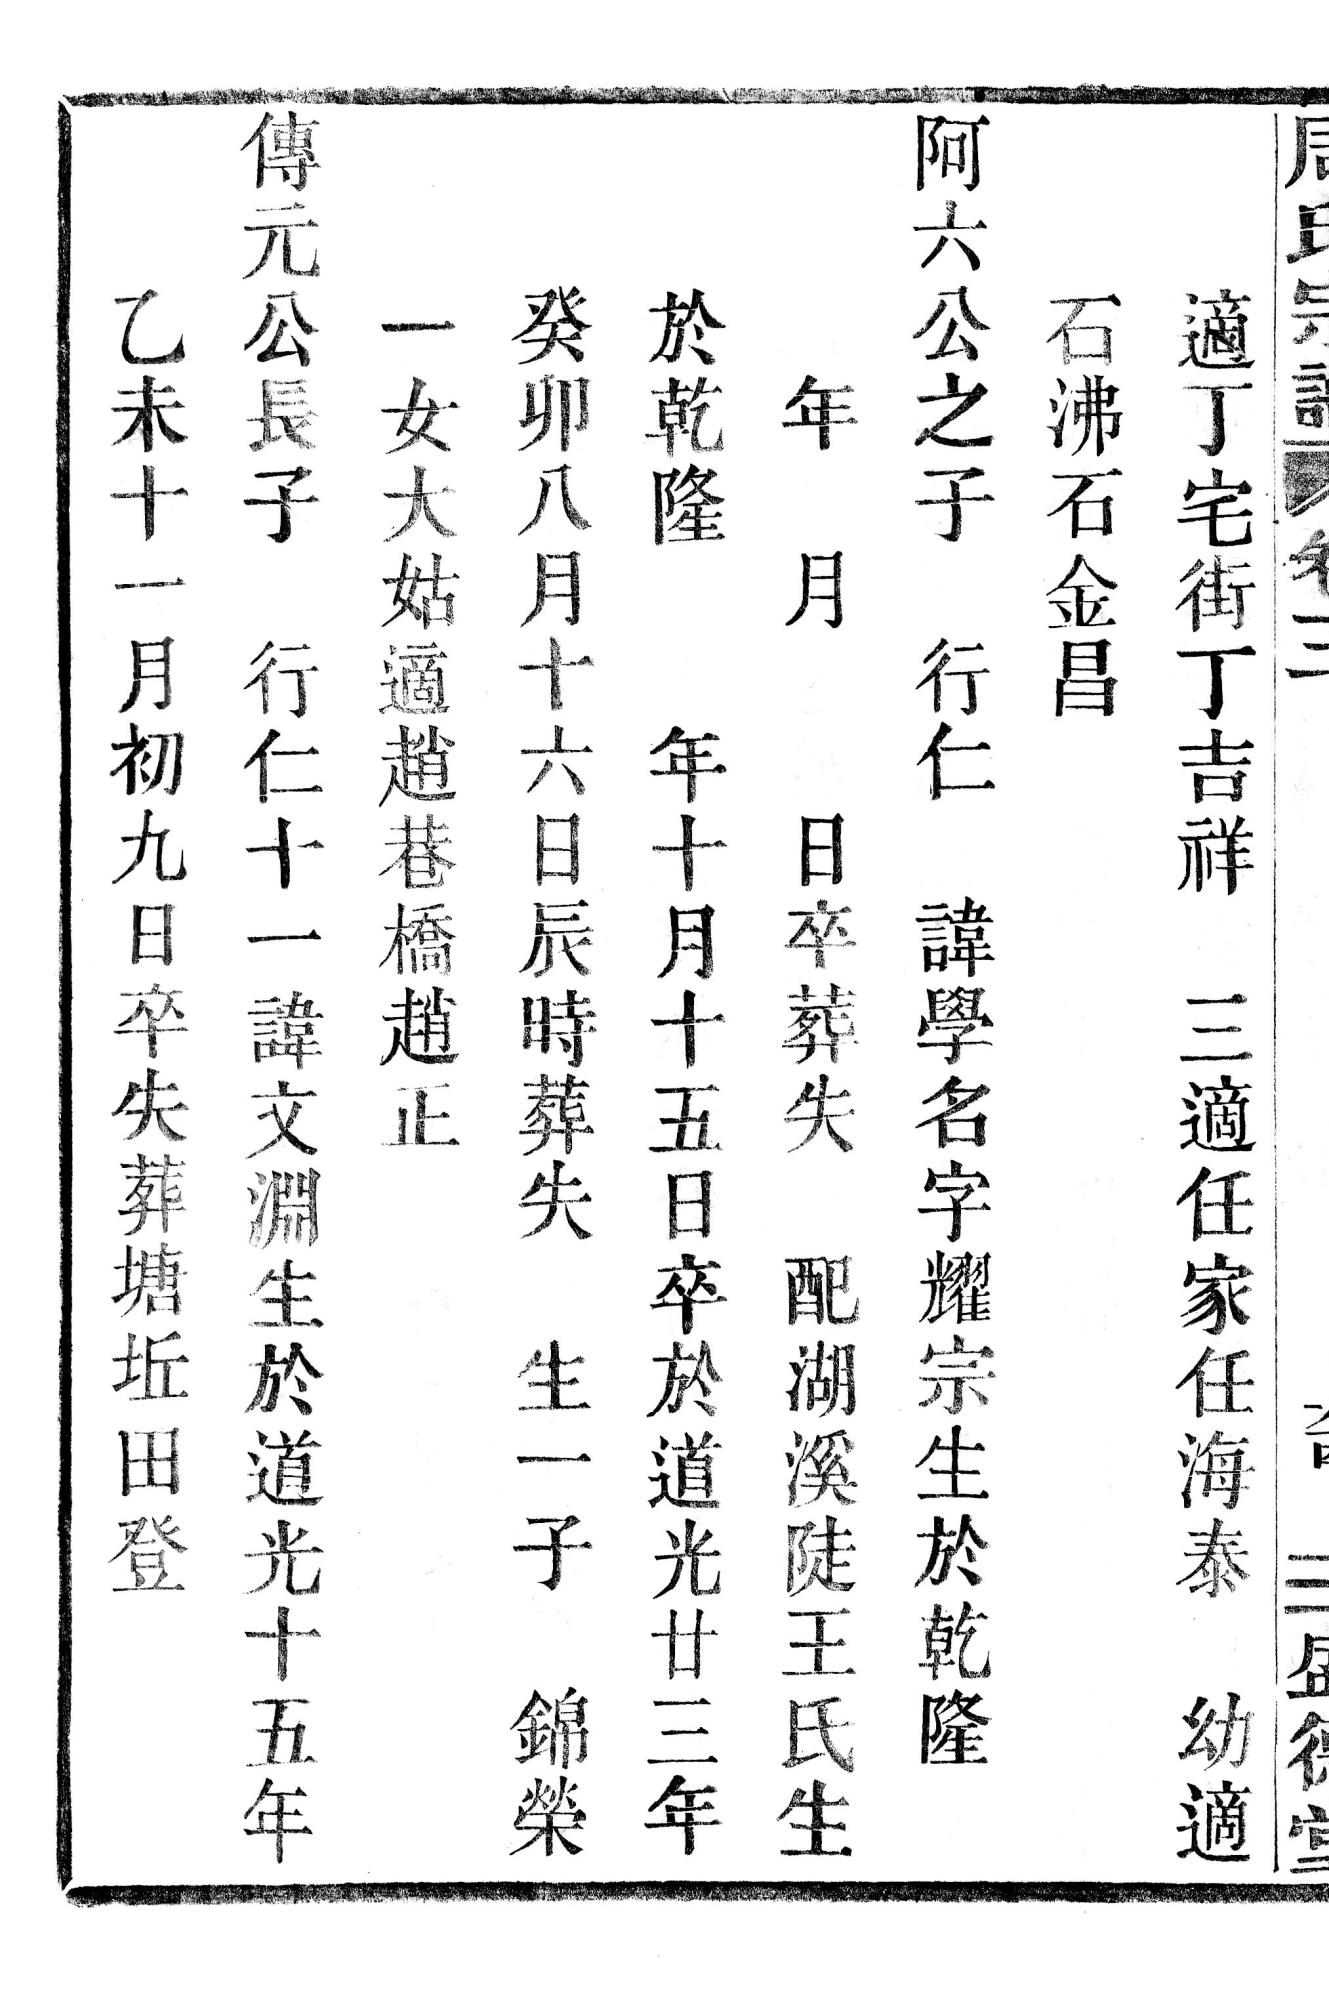 周氏宗譜 卷三 盛德堂
適丁宅街丁吉祥 三適任家任海泰 幼適
石沸石金昌
阿六公之子 行仁 諱學名字耀宗生於乾隆
年 月 日卒葬失 配湖溪陡王氏生
於乾隆 年十月十五日卒於道光廿三年
癸卯八月十六日辰時葬失 生一子 錦榮
一女大姑適趙巷橋趙正
傳元公長子 行仁十一諱文淵生於道光十五年
乙未十一月初九日卒失葬塘坵田登